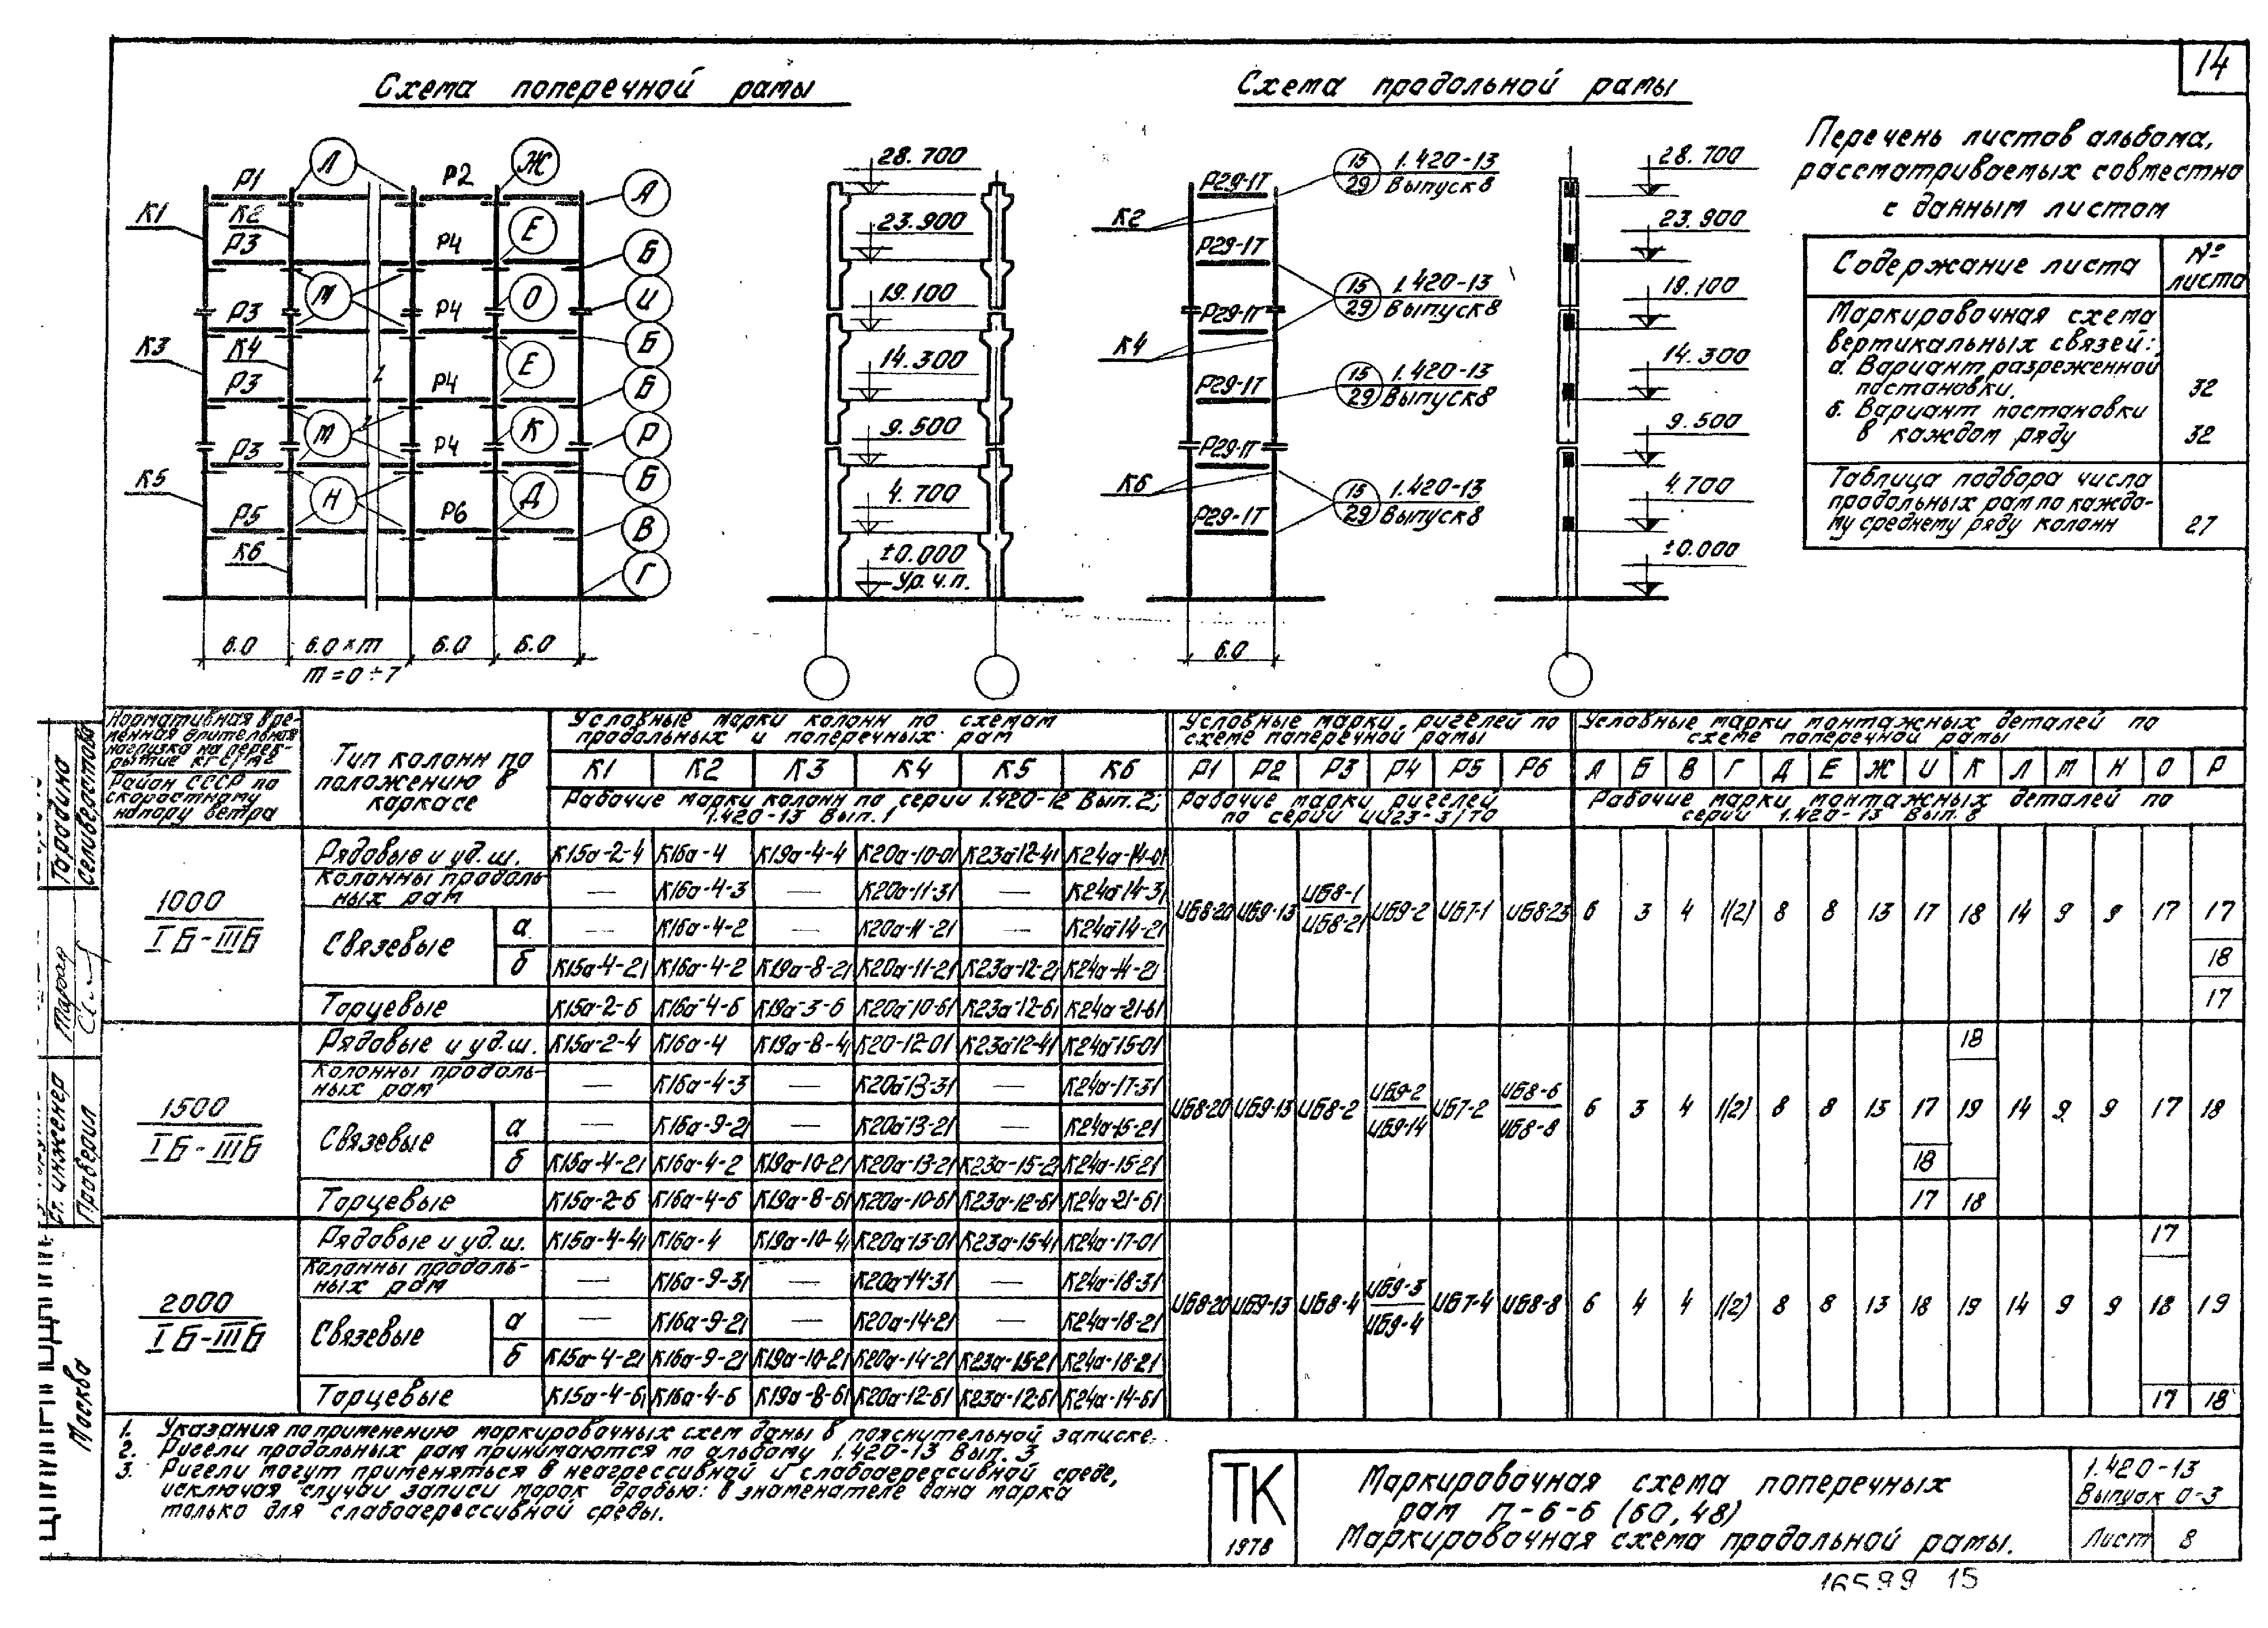 14
Схема поперечной рамы
Схема продольной рамы
Л Ж А Р1 Р2 К1 К2 Р3 Р4 Е Б
М О И Р3 Р4 К3 К4 Б Е
Р3 Р4 Б М К Р
Р3 Р4 К5 Н Д Б
Р5 Р6 В К6 Г
6.0 6.0×m 6.0 6.0
m=0÷7
28.700
23.900
19.100
14.300
9.500
4.700
±0.000
Ур. ч.п.
Р29-1Т 15/29 1.420-13 Выпуск 8
К2
Р29-1Т
15/29 1.420-13 Выпуск 8
Р29-1Т
К4
Р29-1Т 15/29 1.420-13 Выпуск 8
Р29-1Т
К6 15/29 1.420-13 Выпуск 8
Р29-1Т
6.0
28.700
23.900
19.100
14.300
9.500
4.700
±0.000
Перечень листов альбома,
рассматриваемых совместно
с данным листом
Содержание листа № листа
Маркировочная схема
вертикальных связей:
а. Вариант разреженной
постановки. 32
б. Вариант постановки
в каждом ряду 32
Таблица подбора числа
продольных рам по каждо-
му среднему ряду колонн 27
Нормативная вре-
менная длительная
нагрузка на перек-
рытие кгс/м2
Район СССР по
скоростному
напору ветра
Тип колонн по
положению в
каркасе
Условные марки колонн по схемам
продольных и поперечных рам
К1 К2 К3 К4 К5 К6
Рабочие марки колонн по серии 1.420-12 Вып.2;
1.420-13 Вып.1
Условные марки ригелей по
схеме поперечной рамы
Р1 Р2 Р3 Р4 Р5 Р6
Рабочие марки ригелей
по серии ИИ23-3/70
Условные марки монтажных деталей по
схеме поперечной рамы
А Б В Г Д Е Ж И К Л М Н О Р
Рабочие марки монтажных деталей по
серии 1.420-13 Вып. 8
1000
IБ-IIIБ
Рядовые и уд.ш. К15а-2-4 К16а-4 К19а-4-4 К20а-10-01 К23а-12-41 К24а-14-01
Колонны продоль-
ных рам — К16а-4-3 — К20а-11-31 — К24а-14-31
Связевые
а — К16а-4-2 — К20а-11-21 — К24а-14-21
б К15а-4-21 К16а-4-2 К19а-8-21 К20а-11-21 К23а-12-21 К24а-14-21
Торцевые К15а-2-6 К16а-4-6 К19а-3-6 К20а-10-61 К23а-12-61 К24а-21-61
ИБ8-20 ИБ9-13 ИБ8-1/ИБ8-21 ИБ9-2 ИБ7-1 ИБ8-23
6 3 4 1(2) 8 8 13 17 18 14 9 9 17 17
18
17
1500
IБ-IIIБ
Рядовые и уд.ш. К15а-2-4 К16а-4 К19а-8-41 К20-12-01 К23а-12-41 К24а-15-01
Колонны продоль-
ных рам — К16а-4-3 — К20а-13-31 — К24а-17-31
Связевые
а — К16а-9-21 — К20а-13-21 — К24а-15-21
б К15а-4-21 К16а-4-2 К19а-10-21 К20а-13-21 К23а-15-21 К24а-15-21
Торцевые К15а-2-6 К16а-4-6 К19а-8-61 К20а-10-61 К23а-12-61 К24а-21-61
ИБ8-20 ИБ9-13 ИБ8-2 ИБ9-2/ИБ9-14 ИБ7-2 ИБ8-6/ИБ8-8
18
6 3 4 1(2) 8 8 13 17 19 14 9 9 17 18
18
17 18
2000
IБ-IIIБ
Рядовые и уд.ш. К15а-4-41 К16а-4 К19а-10-41 К20а-13-01 К23а-15-41 К24а-17-01
Колонны продоль-
ных рам — К16а-9-31 — К20а-14-31 — К24а-18-31
Связевые
а — К16а-9-21 — К20а-14-21 — К24а-18-21
б К15а-4-21 К16а-9-21 К19а-10-21 К20а-14-21 К23а-15-21 К24а-18-21
Торцевые К15а-4-61 К16а-4-6 К19а-8-61 К20а-12-61 К23а-12-61 К24а-14-61
ИБ8-20 ИБ9-13 ИБ8-4 ИБ9-3/ИБ9-4 ИБ7-4 ИБ8-8
17
6 4 4 1(2) 8 8 13 18 19 14 9 9 18 19
17 18
1. Указания по применению маркировочных схем даны в пояснительной записке.
2. Ригели продольных рам принимаются по альбому 1.420-13 Вып. 3
3. Ригели могут применяться в неагрессивной и слабоагрессивной среде,
исключая случаи записи марок дробью: в знаменателе дана марка
только для слабоагрессивной среды.
ТК
1978
Маркировочная схема поперечных
рам п-6-6 (60,48)
Маркировочная схема продольной рамы.
1.420-13
Выпуск 0-3
Лист 8
16599 15
Тарадина
Селиверстова
Ст. инженер
Проверил
Москва